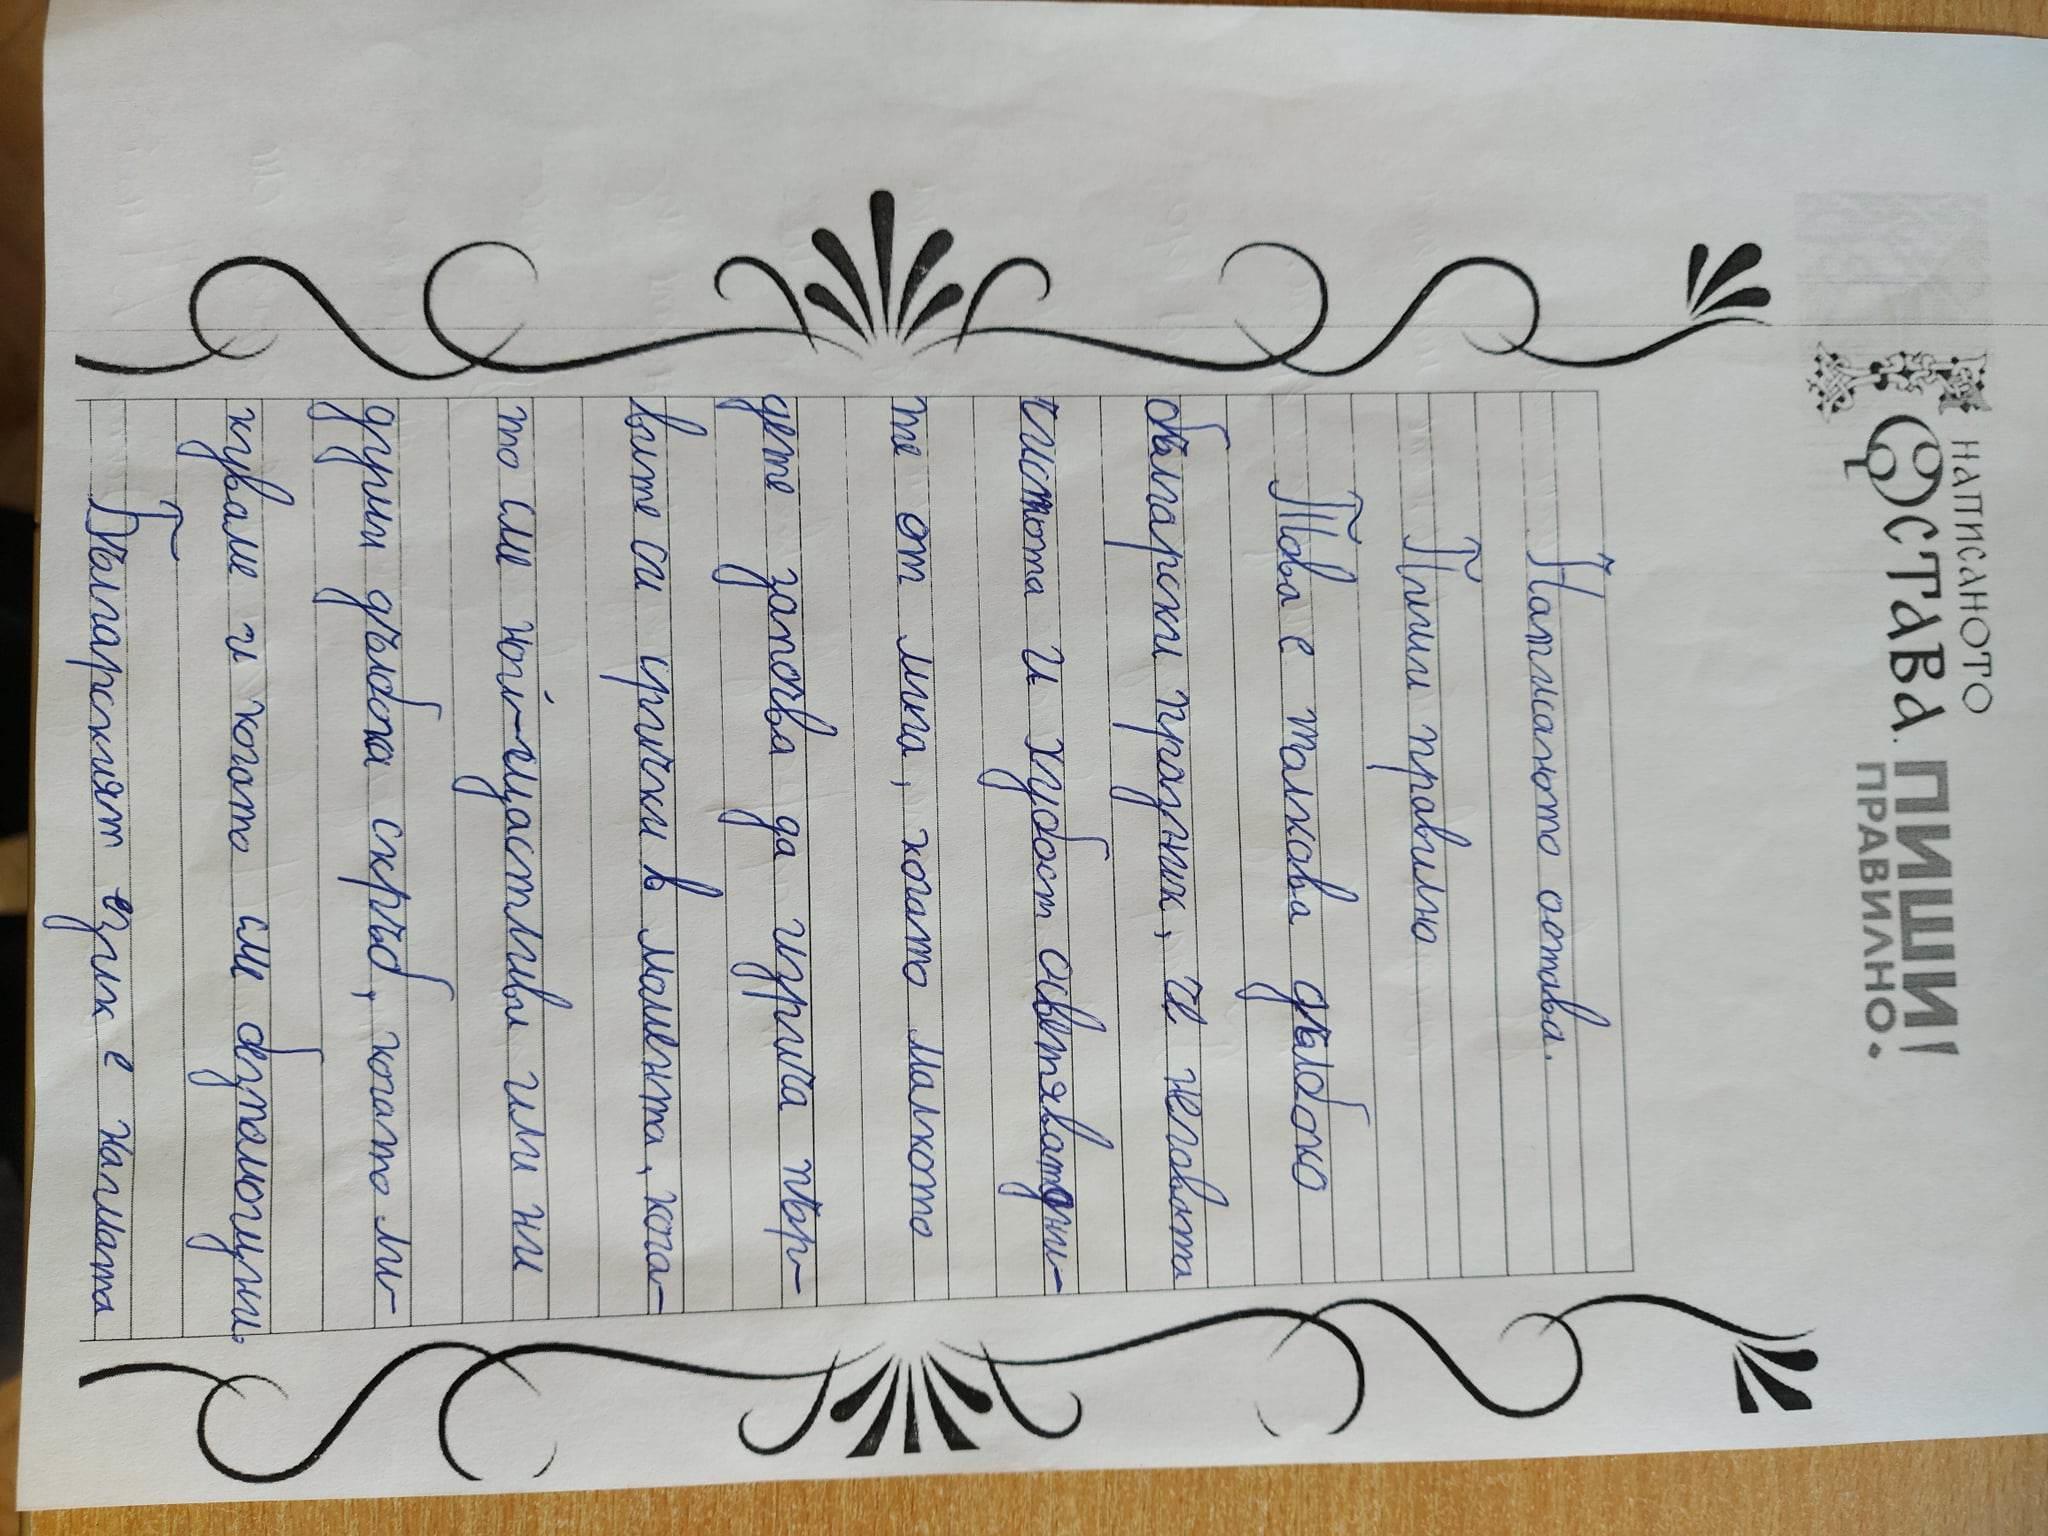 НАПИСАНОТО
ОСТАВА. ПИШИ
ПРАВИЛНО.
Написаното остава.
Пиши правилно
Това е толкова дълбоко
български празник, и неговата
чистота и хубост осветяват ни-
те от мига, когато малкото
дете започва да изрича пър-
вите си срички в момента, кога-
то сме най-щастливи или ни
други дълбока скръб, когато ли-
куваме и когато сме обезпокоени.
Българският език е нашата